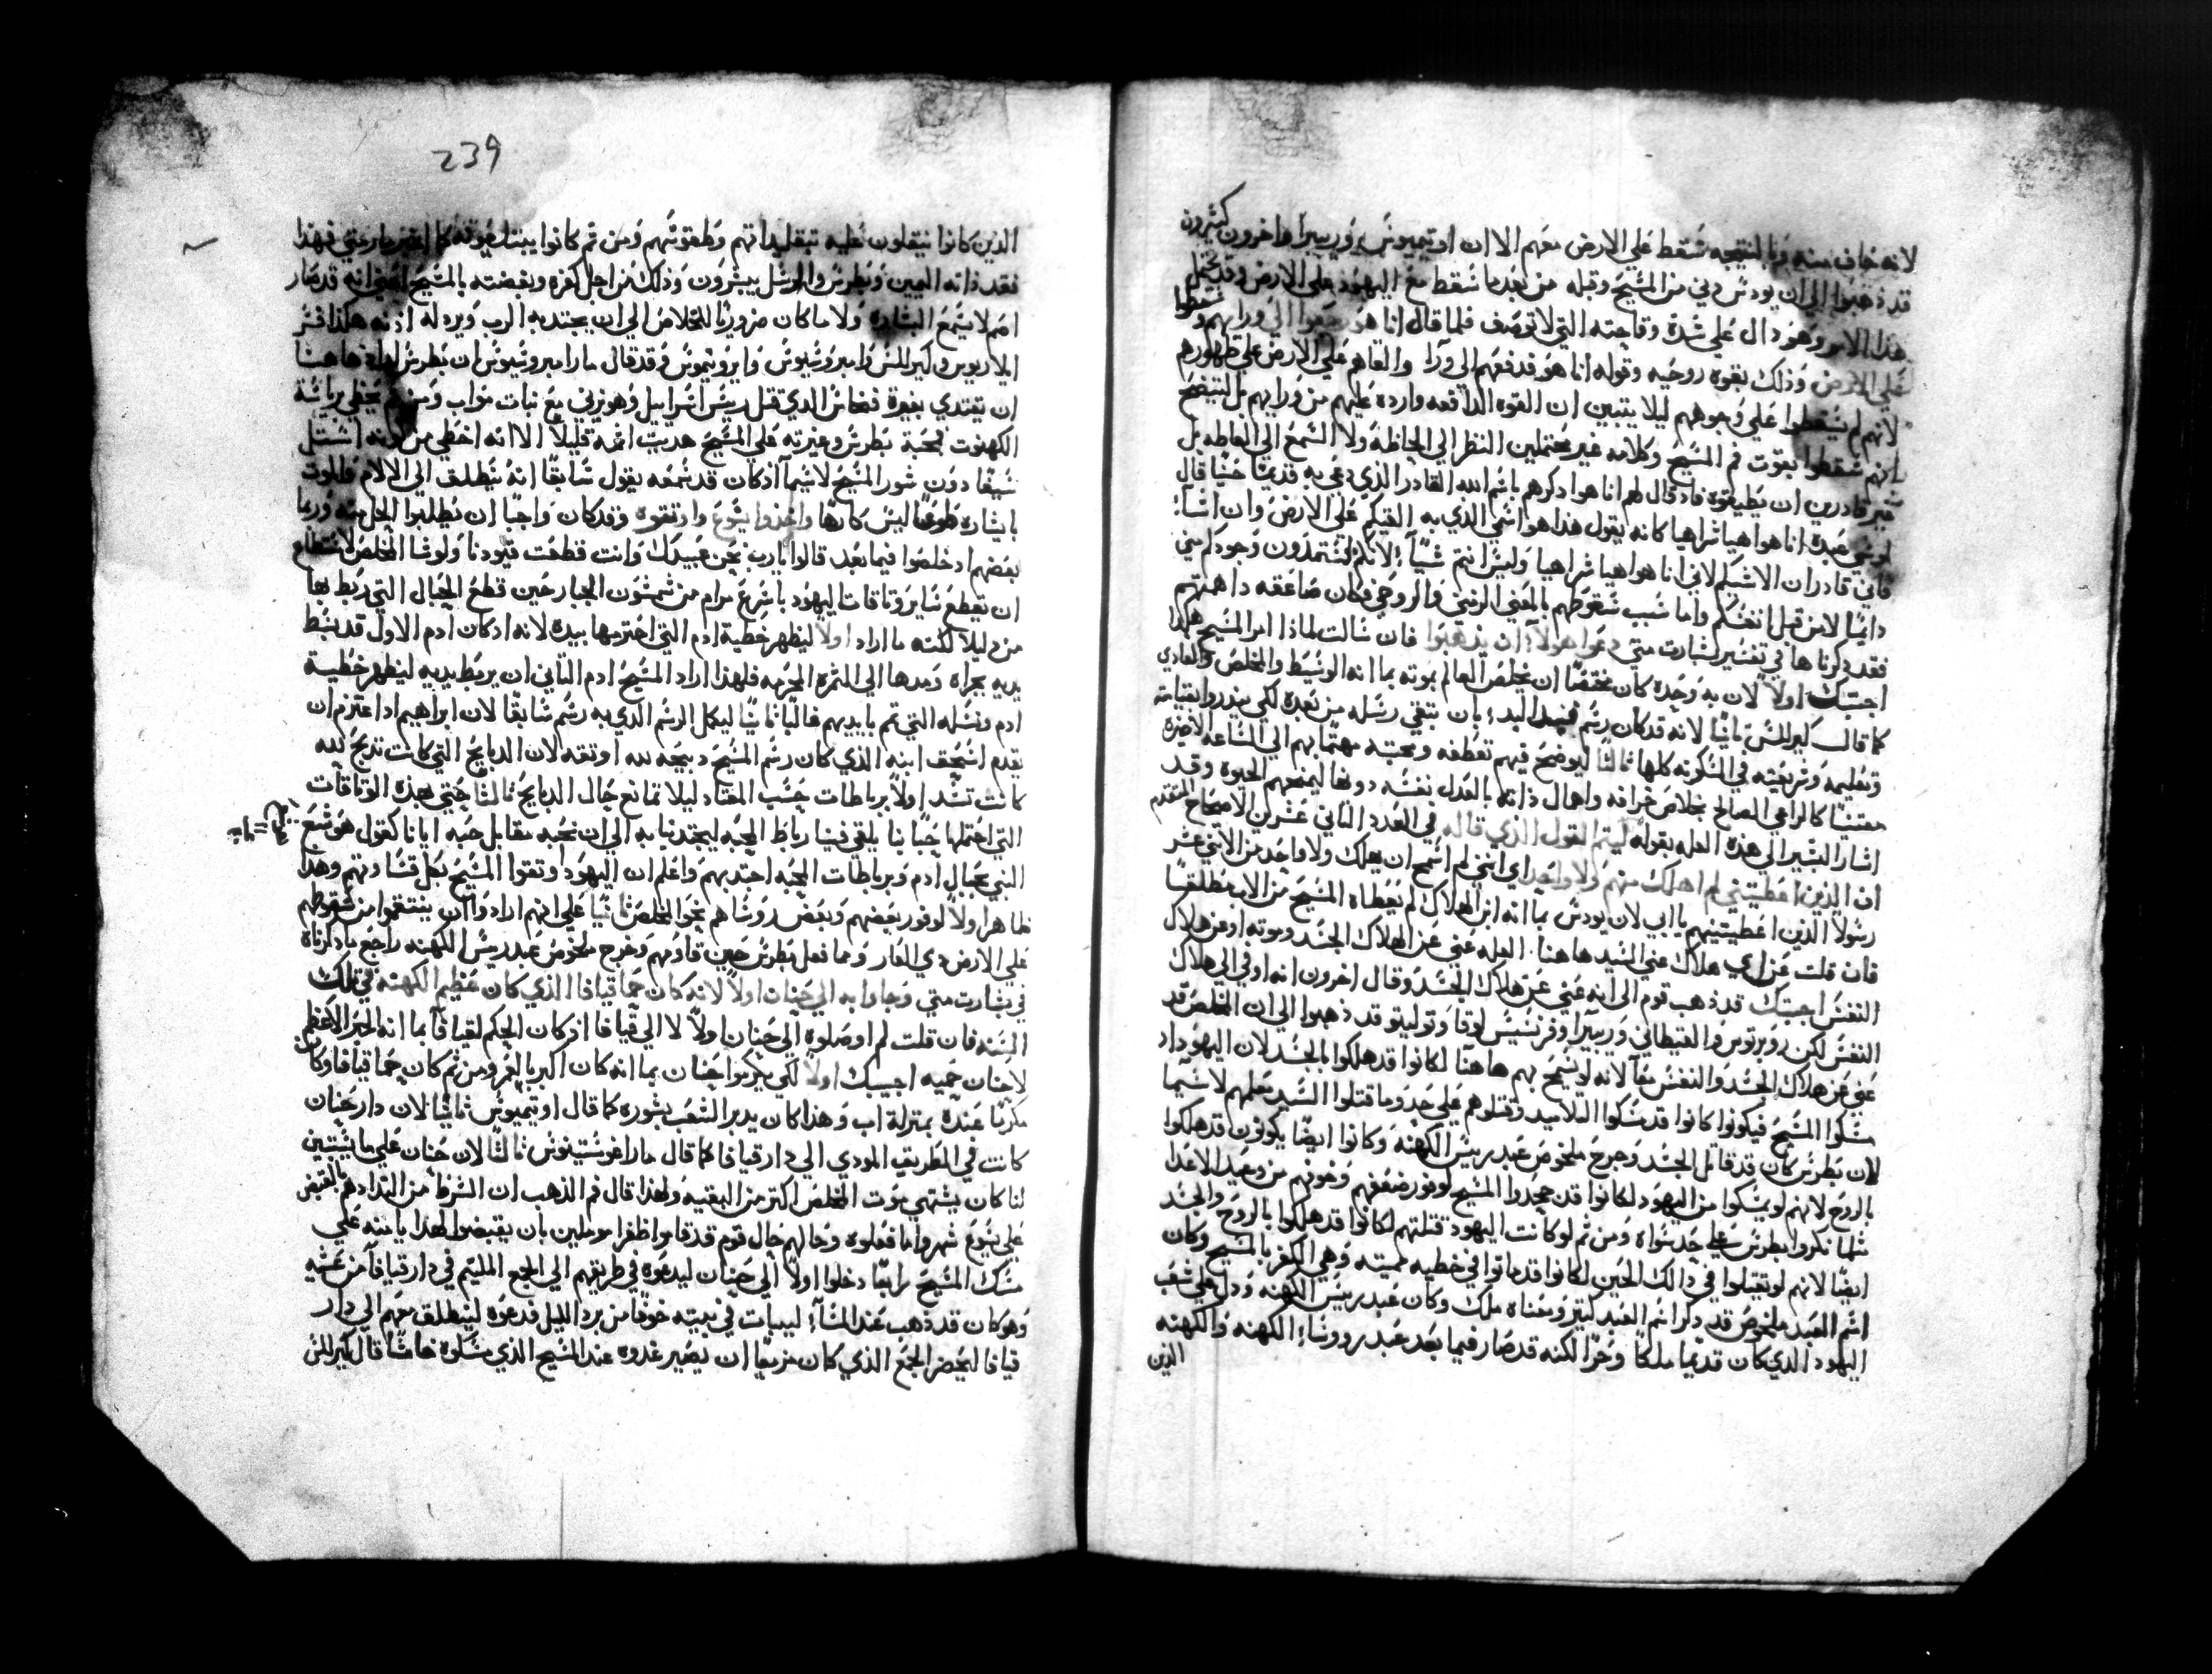 لانه خاف منه وبالنتيجه سقط علي الارض معهم الا ان اوتيميوس وريبيرا واخرون كثيرون
قد ذهبوا الي ان يودس دني من المسيح وقبله من بعد ما سقط مع اليهود علي الارض وقد يحتمل
هذا الامر وهو دال علي شدة وقاحته التي لا توصف فلما قال انا هو رجعوا الي ورايهم وسقطوا
علي الارض وذلك بقوه روحيه وقوله انا هو قد دفعهم الي ورا والقاهم علي الارض علي ظهورهم
لانهم لم يسقطوا علي وجوههم ليلا يتبين ان القوه الدافعه وارده عليهم من ورايهم بل ليتضح
بانهم سقطوا بقوت فم المسيح وكلامه غير محتملين النظر الي لحاظه ولا السمع الي الفاظه بل
غير قادرين ان يطيقوه فاذ قال لهم انا هو اذكرهم باسم الله القادر الذي دعي به قديما حينا قال
لموسي عبده انا هو اهيا شراهيا كانه يقول هذا هو اسمي الذي به القيكم علي الارض وان اشا
فاني قادر ان الاشيكم لاني انا هو اهيا شراهيا وليس انتم شيا لانكم تستمدون وجودكم مني
دايما لا من قبل انفسكم واما سبب سقوطهم بالمعني الرمزي والروحي فكان صاعقه داهمتهم
فقد ذكرناها في تفسير بشارت متي دعوا هولا ان يذهبوا فان سالت لماذا امر المسيح هكذا
اجبتك اولا لان به وحده كان مختصا ان يخلص العالم بموته بما انه الوسيط والمخلص والفادي
كما قال كيرللس ثانيا لانه قد كان رسم منذ البد بان تبقي رسله من بعده لكي ينذروا بقيامته
وتعليمه وشريعته في المسكونه كلها ثالثا ليوضح فيهم تعطفه ومحبته مهتما بهم الي الساعه الاخيره
معتنيا كالراعي الصالح بخلاص خرافه واهمال ذاته بالعدل نفسه دونها ليمنحهم الحيوه وقد
اشار البشير الي هذه العله بقوله ليتم القول الذي قاله في العدد الثاني عشر من الاصحاح المتقدم
ان الذين اعطيتني لم اهلك منهم ولا واحد اي انني لم اسمح ان يهلك ولا واحد من الاثني عشر
رسولا الذين اعطيتنيهم يا ابي لان يودس بما انه ابن الهلاك لم يعطاه المسيح من الاب مطلقا
فان قلت عن اي هلاك عني السيد هاهنا العله عني عن هلاك الجسد وموته او عن هلاك
النفس اجبتك قد ذهب قوم الي انه عني عن هلاك الجسد وقال اخرون انه اوفي الي هلاك
النفس لكن روبرتوس والقيطاني وريبيرا وفرنسيس لوقا وتوليتو قد ذهبوا الي ان المخلص قد
عني عن هلاك الجسد والنفس معا لانه لو سمح بهم هاهنا لكانوا قد هلكوا بالجسد لان اليهود اذ
مسكوا المسيح فيكونوا كانوا قد مسكوا التلاميذ وقتلوهم علي حد وما قتلوا السيد معلمهم لا سيما
لان بطرس كان قد قاتل الجند وجرح ملخوص عبد رييس الكهنه وكانوا ايضا يكونون قد هلكوا
بالروح لانهم لو يمسكوا من اليهود لكانوا قد جحدوا المسيح لوفور ضعفهم وخوفهم من وعيد الاعدا
مثلما نكروا بطرس علي حد سواه ومن ثم لو كانت اليهود قتلتهم لكانوا قد هلكوا بالروح والجسد
ايضا لانهم لو تقبلوا في ذالك الحين لكانوا قد ماتوا في خطيه مميته وهي الكفر بالمسيح وكان
اسم العبد ملخوص قد ذكر اسم العبد كيتر ومعناه ملك وكان عبد رييس الكهنه ودل علي شعب
اليهود الذي كان قديما ملكا وحرا لكنه قد صار فيما بعد عبد روسا الكهنه والكهنه
الذين
239
الذين كانوا يثقلون عليه بتقليداتهم وطقوسهم ومن ثم كانوا
فقد ذانه اليمين وبطرس والرسل يبشرون وذلك من اجل كفره وبغضته بالمسيح اعني انه قد صار
اصم لا يسمع البشاره ولا ما كان ضروريا للخلاص الي ان يجتديه الرب ويرد له اذنه هكذا فسر
ايلاريوس وكيرللس وامبروسيوس وايرونيموس وقد قال مار امبروسيوس ان بطرس اراد هاهنا
ان يقتدي بغيرة فنحاس الذي قتل رييس اسراييل وهو يزني مع بنات مواب ومن ثم يحظي برياسة
الكهنوت فمحبة بطرس وغيرته علي المسيح هدبت اثمه قليلا الا انه اخطي من كونه استل
سيفا دون شور المسيح لا سيما اذ كان قد سمعه يقول سابقا انه ينطلق الي الالام والموت
باشاره طوعا ليس كارها واخذوا يسوع واوثقوه وقد كان واجبا ان يطلبوا الحل منه وربما
بعضهم اذ خلصوا فيما بعد قالوا يا رب نحن عبيدك وانت قطعت قيودنا ولوشا المخلص لاستطاع
ان يقطع ساير وثاقات اليهود باسرع مرام من شمشون الجبار حين قطع الحبال التي ربط بها
من دليلا لكنه ما اراد اولا ليظهر خطية ادم التي اخترمها بيده لانه اذ كان ادم الاول قد بسط
يديه بجراه ومدها الي الثمره المحرمه فلهذا اراد المسيح ادم الثاني ان يربط يديه ليظهر خطية
ادم ونسله التي تم بايديهم غالبا ثانيا ليكمل الرسم الذي به رسم سابقا لان ابراهيم اذ اعتزم ان
يقدم اسحق ابنه الذي كان رسم المسيح ذبيحه لله اوثقه لان الذبايح التي كانت تذبح لله
كانت تشد اولا برباطات حسب المعتاد ليلا تمانع حال الذبايح ثالثا حتي بهذه الوثاقات
التي احتملها حبا بنا يلقي فينا رباط المحبه ليجتذبنا به الي ان نحبه مقابل حبه ايانا كقول هوشع
النبي بحبال ادم وبرباطات المحبه اجتذبهم واعلم ان اليهود اوثقوا المسيح بكل قساوتهم وهذا
ظاهر اولا لوفور بغضهم وبغض روساهم نحو المخلص ثانيا علي انهم ارادوا ان ينتقموا من سقوطهم
علي الارض ذي العار ومما فعل بطرس حين قاومهم وجرح ملخوص عبد رييس الكهنه راجع ما ذكرناه
في بشارت متي وجاوا به الي حنان اولا لانه كان حما قيافا الذي كان عظيم الكهنه في تلك
السنه فان قلت لم اوصلوه الي حنان اولا لا الي قيافا اذ كان الحكم لقيافا بما انه الحبر الاعظم
لا حنان حميه اجيبك اولا لكي يكرموا حنان بما انه كان اكبر بالعمر ومن ثم كان حما قيافا وكان
مكرما عنده بمنزلة اب وهذا كان يدبر الشعب بشوره كما قال اوتيميوس ثانيا لان دار حنان
كانت في الطريق المودي الي دار قيافا كما قال مار اغوستينوس ثالثا لان حنان علي ما يستبين
لنا كان يشتهي موت المخلص اكثر من البقيه ولهذا قال فم الذهب ان الشرط من التداذهم بالقبض
علي يسوع شهروا ما فعلوه وحالهم حال قوم قد قاموا ظفرا موملين بان يقبضوا لهذا يامنه علي
مسك المسيح رابعا دخلوا اولا الي حنان ليدعوه في طريقهم الي الجمع الملتيم في دار قيافا من عشيه
وهو كان قد ذهب عند المسا ليبات في بيته خوفا من برد الليل فدعوه لينطلق معهم الي دار
قيافا ليحضر الجمع الذي كان مزمعا ان يصير غدوه عند المسيح الذي مسكوه خامسا قال كيرللس